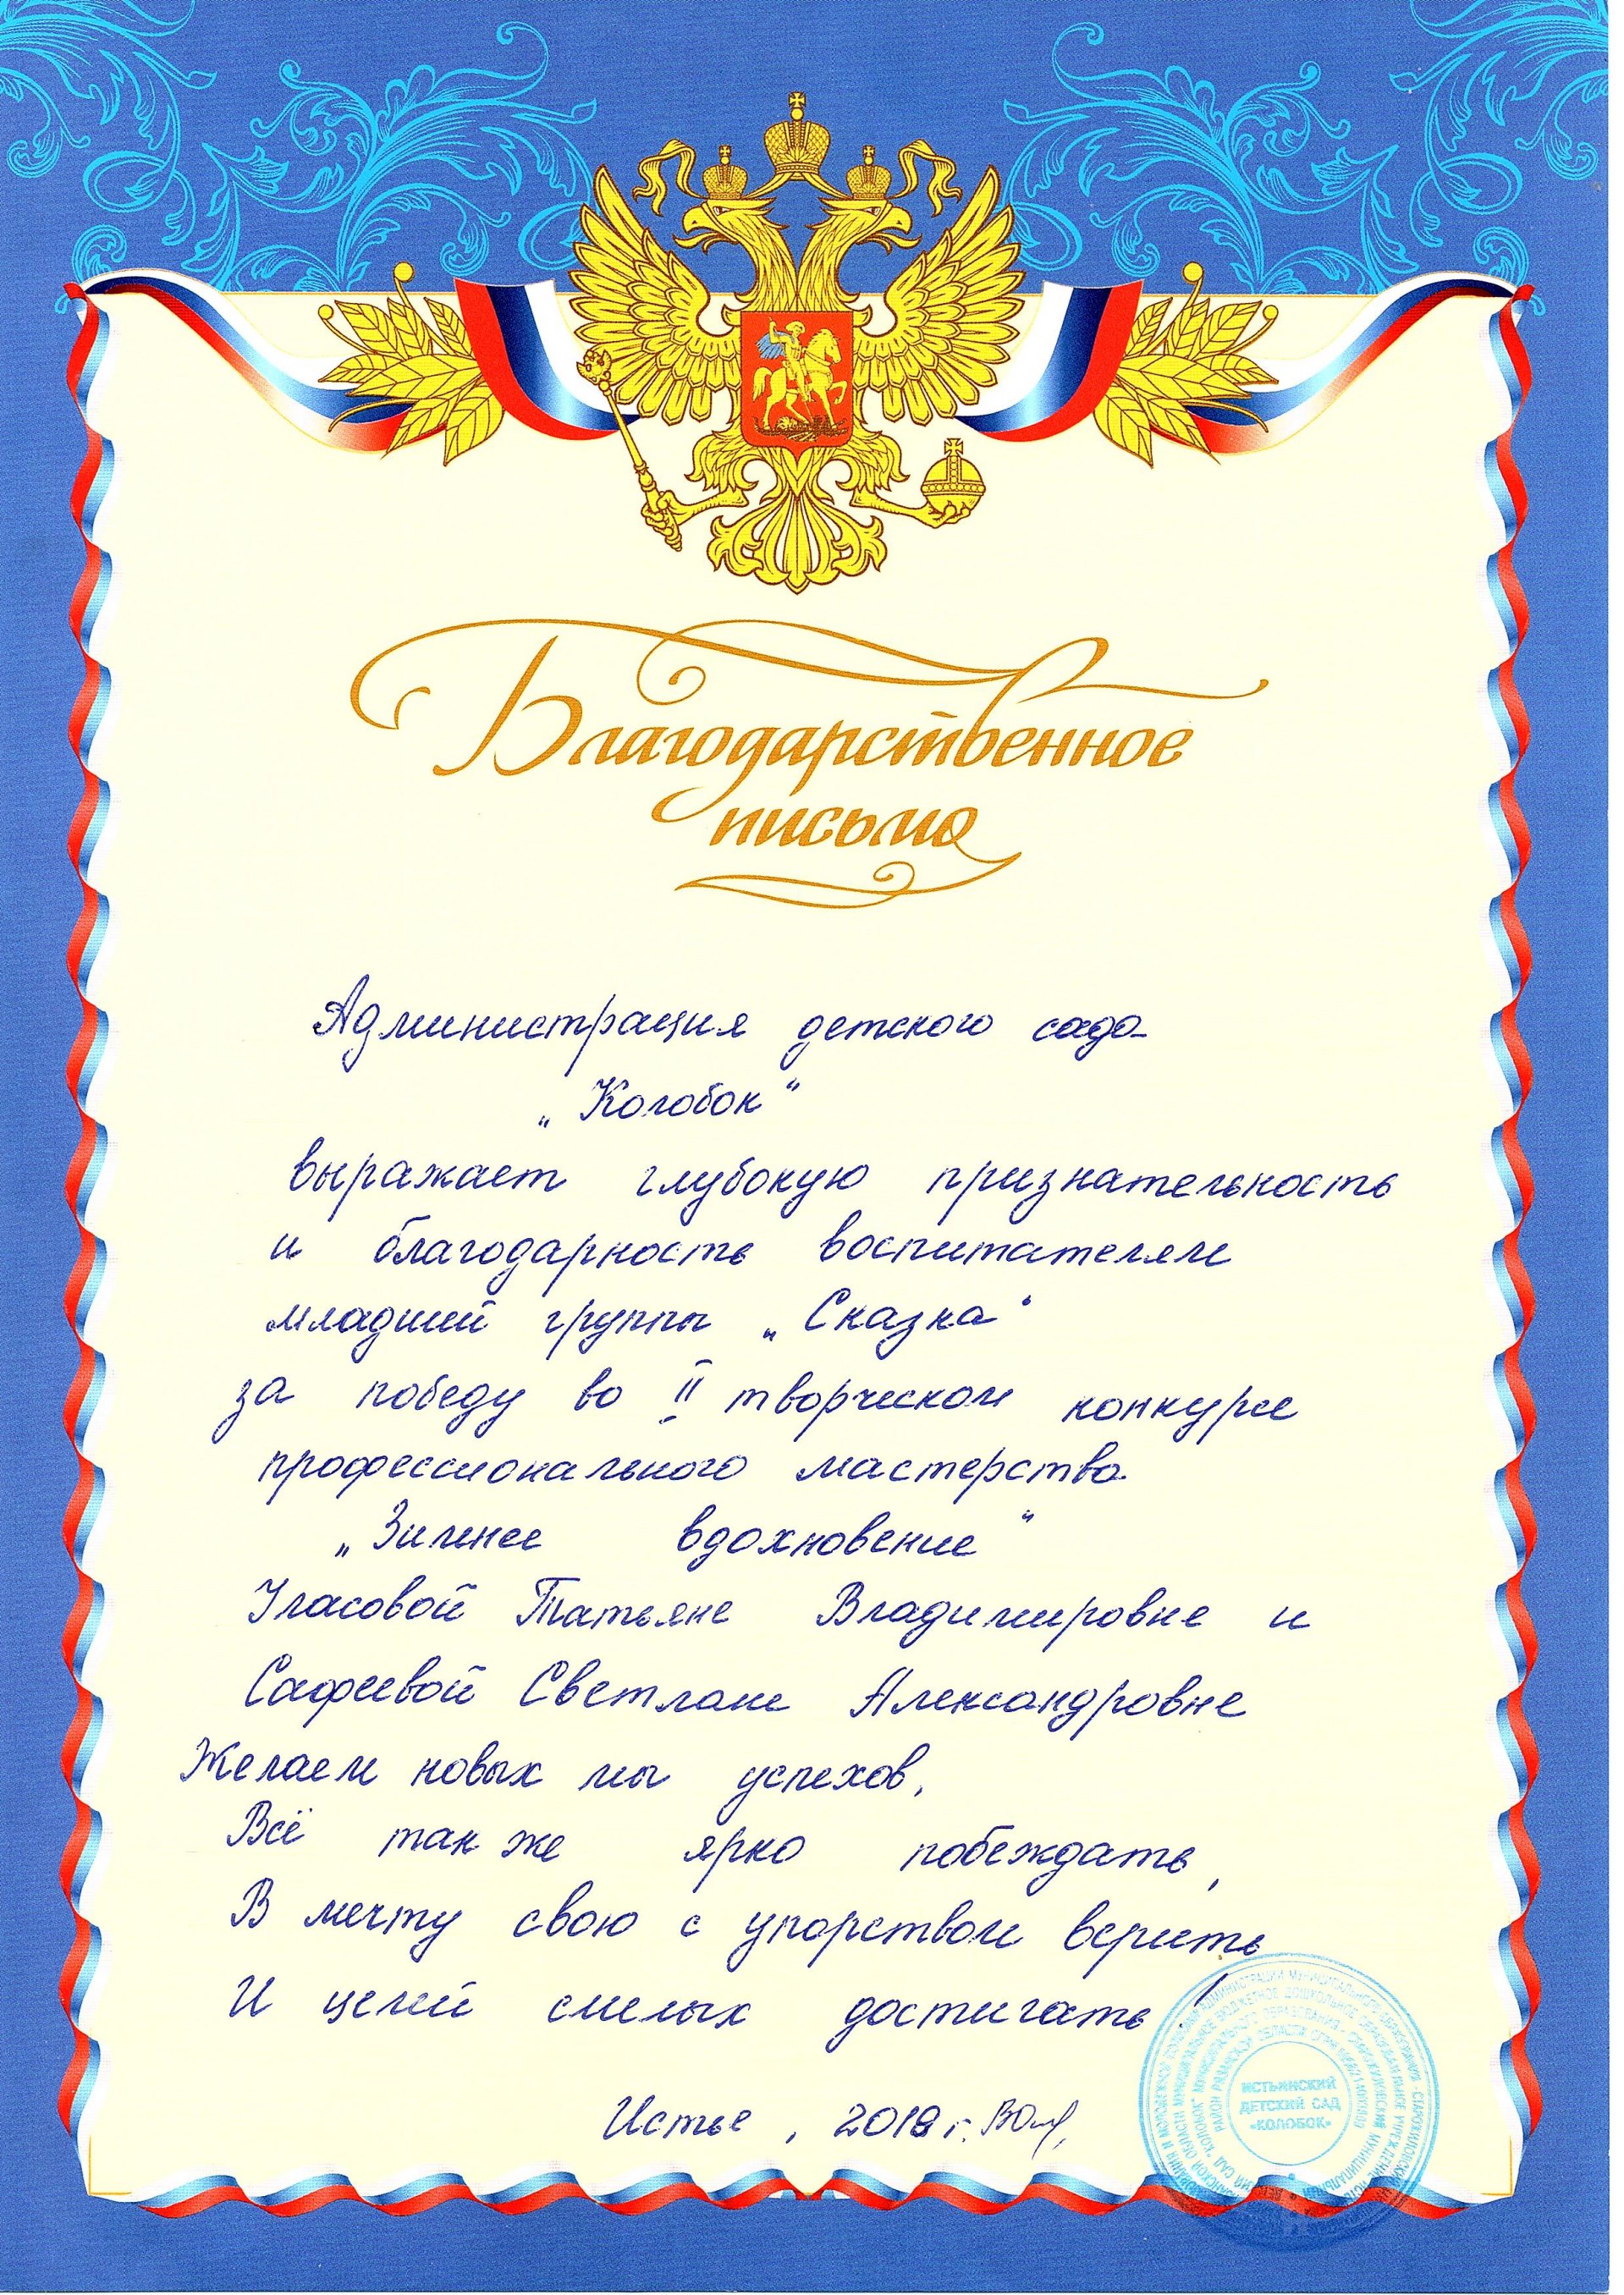 Благодарственное
письмо
Администрация детского сада
„Колобок“
выражает глубокую признательность
и благодарность воспитателям
младшей группы „Сказка“
за победу во II творческом конкурсе
профессионального мастерства
„Зимнее вдохновение“
Уласовой Татьяне Владимировне и
Сафеевой Светлане Александровне
Желаем новых мы успехов,
Всё так же ярко побеждать,
В мечту свою с упорством верить
И целей смелых достигать!
Истье, 2018 г.
ИСТЬИНСКИЙ
ДЕТСКИЙ САД
«КОЛОБОК»